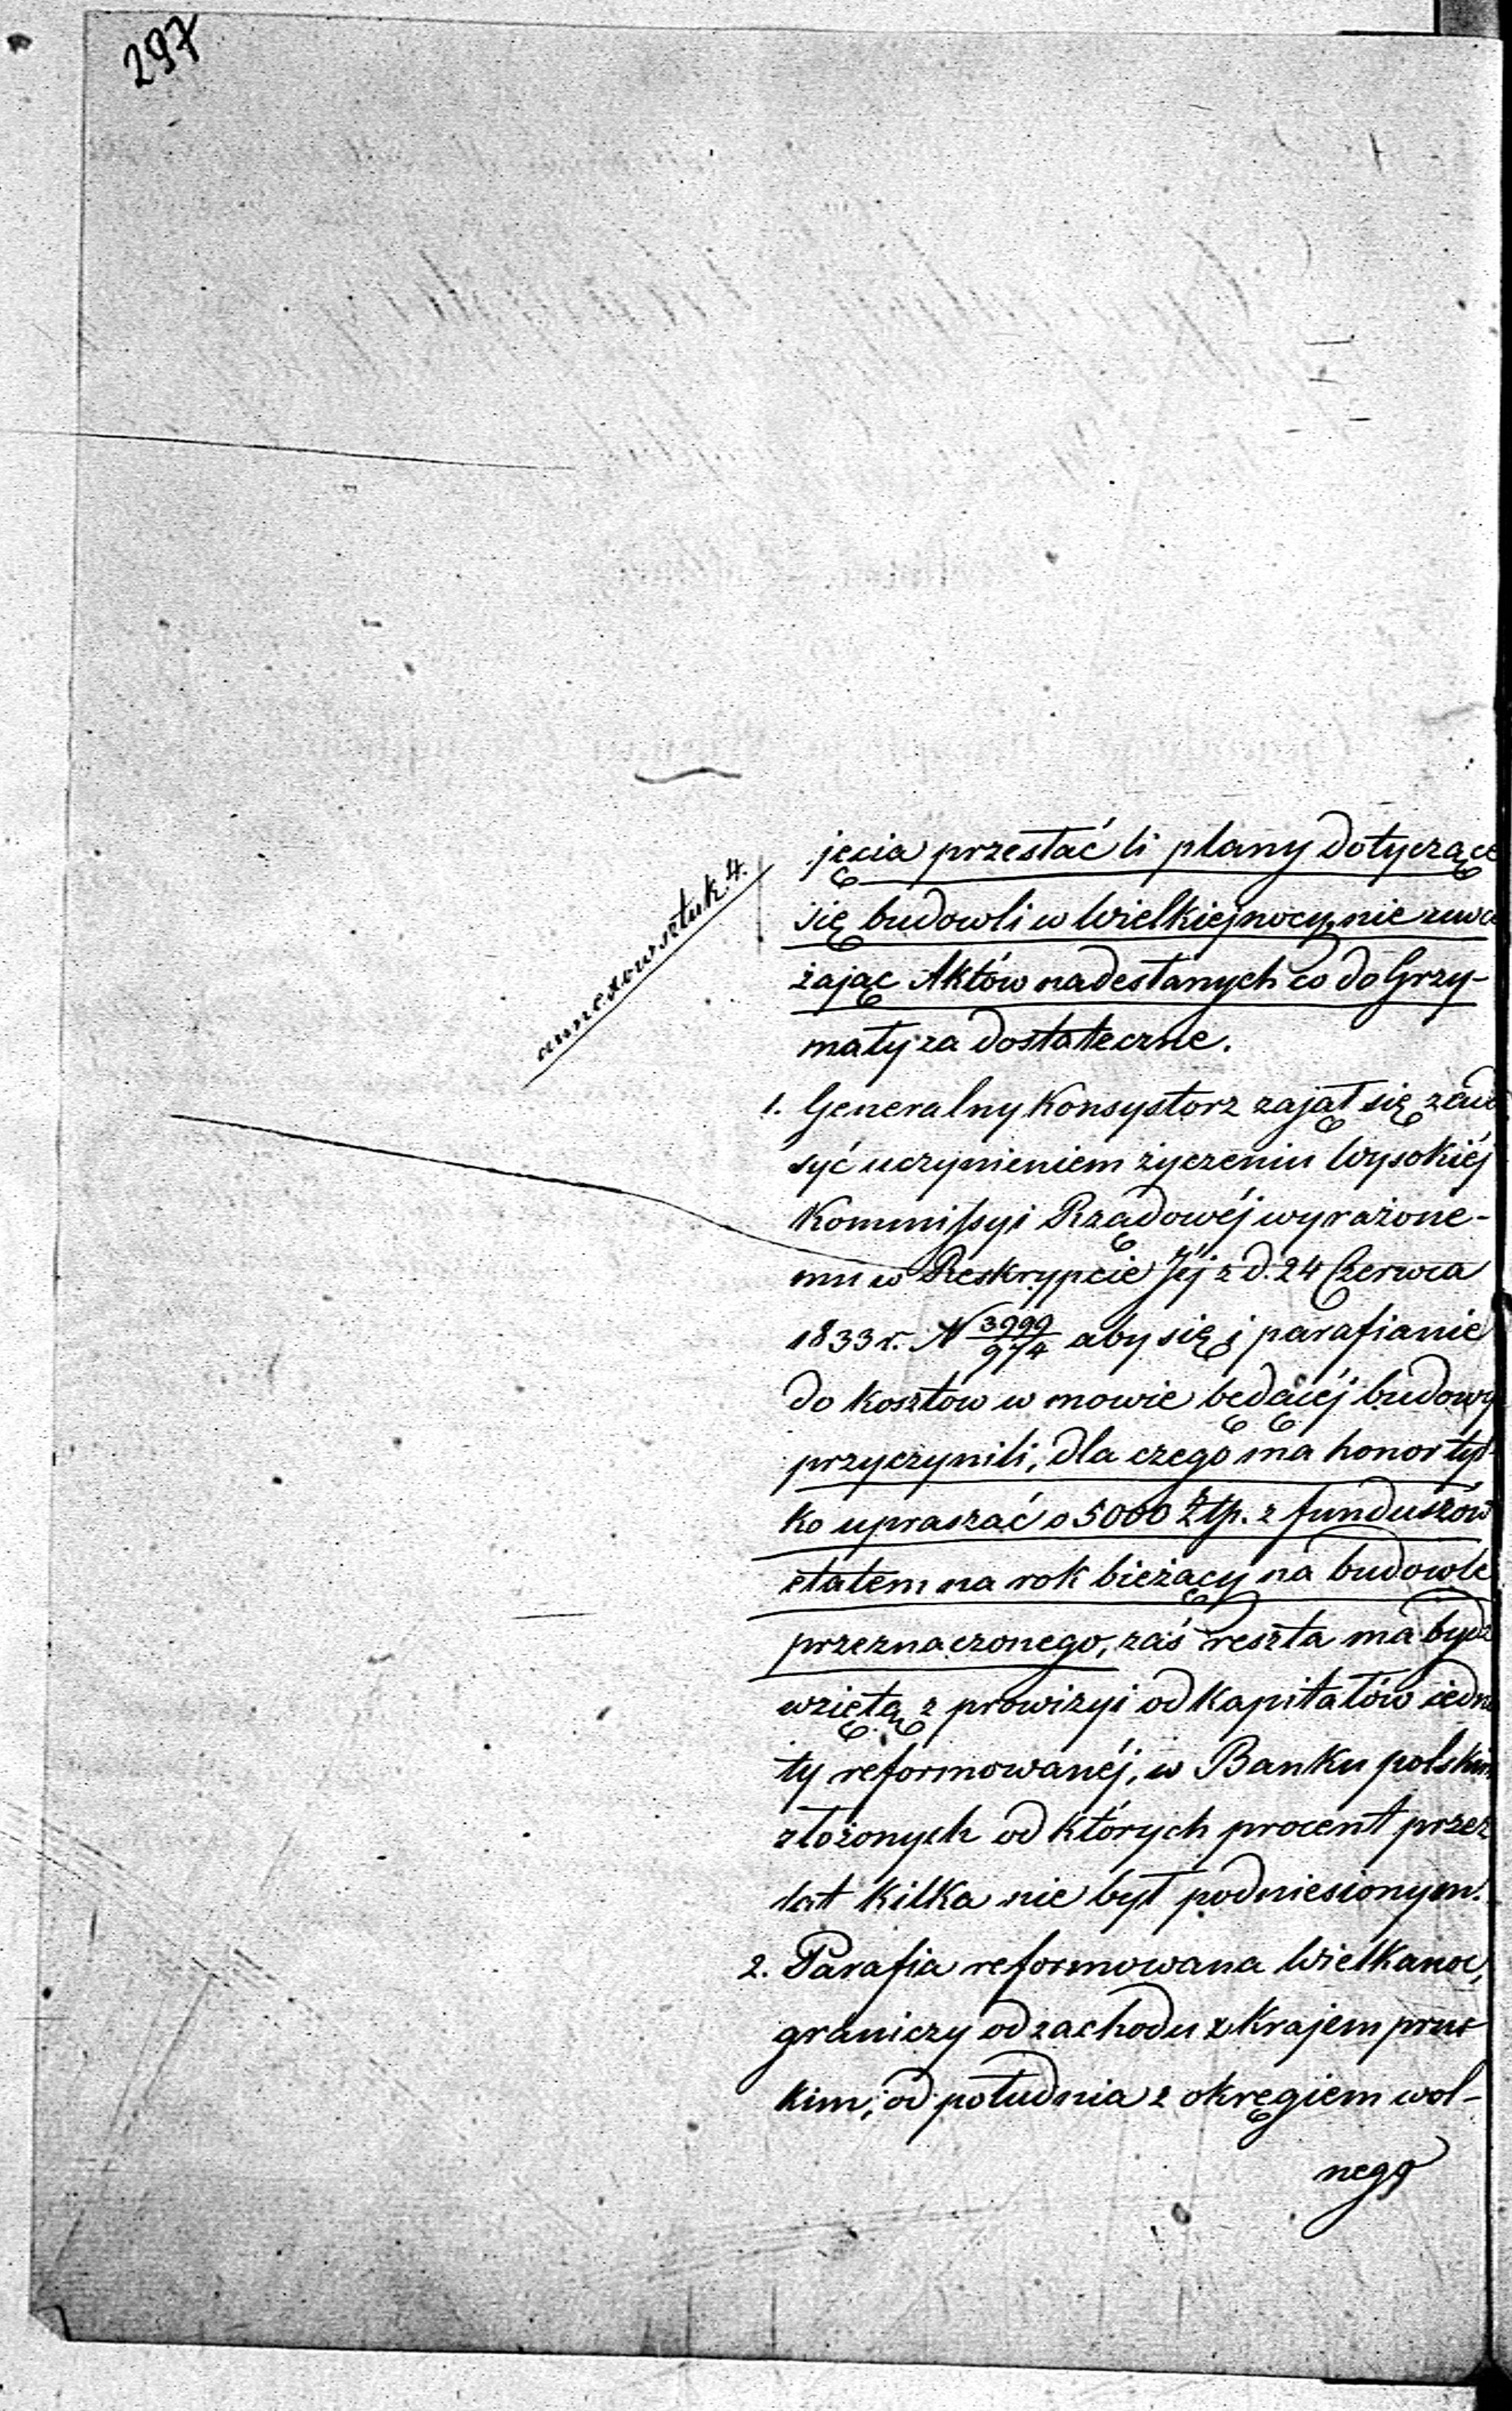 297
annexow sztuk 4.
jęcia przesłać li plany dotyczące
się budowli w Wielkiejnocy, nie uwa
żając Aktów nadesłanych co do Grzy-
mały za dostateczne.
1. Generalny Konsystorz zajął się zado
syć uczynieniem życzeniu Wysokiéj
Kommissyi Rządowéj wyrażone-
mu w Reskrypcie Jéj z d. 24 Czerwca
1833 r. N 3999/974 aby się i parafianie
do kosztów w mowie będącéj budowy
przyczynili, dla czego ma honor tyl-
ko upraszać o 5000 Złp. z funduszów
etatem na rok bieżący na budowle
przeznaczonego, zaś reszta ma bydź
wziętą z prowizyi od kapitałów iedno
ty reformowanéj, w Banku polskim
złożonych od których procent przez
lat kilka nie był podniesionym.
2. Parafia reformowana Wielkanoc,
graniczy od zachodu z Krajem prus
kim, od południa z okręgiem wol-
nego